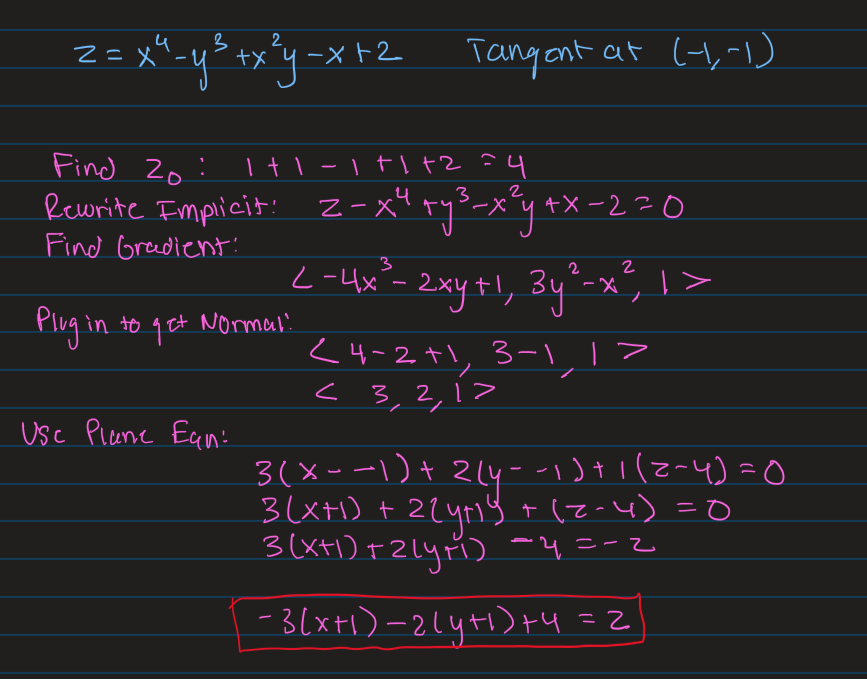 z = x⁴ - y³ + x²y - x + 2 Tangent at (-1, -1)
Find z₀: 1 + 1 - 1 + 1 + 2 = 4
Rewrite Implicit: z - x⁴ + y³ - x²y + x - 2 = 0
Find Gradient:
< -4x³ - 2xy + 1, 3y² - x², 1 >
Plug in to get Normal:
< 4 - 2 + 1, 3 - 1, 1 >
< 3, 2, 1 >
Use Plane Eqn:
3(x - -1) + 2(y - -1) + 1(z - 4) = 0
3(x+1) + 2(y+1) + (z - 4) = 0
3(x+1) + 2(y+1) - 4 = -z
-3(x+1) - 2(y+1) + 4 = z